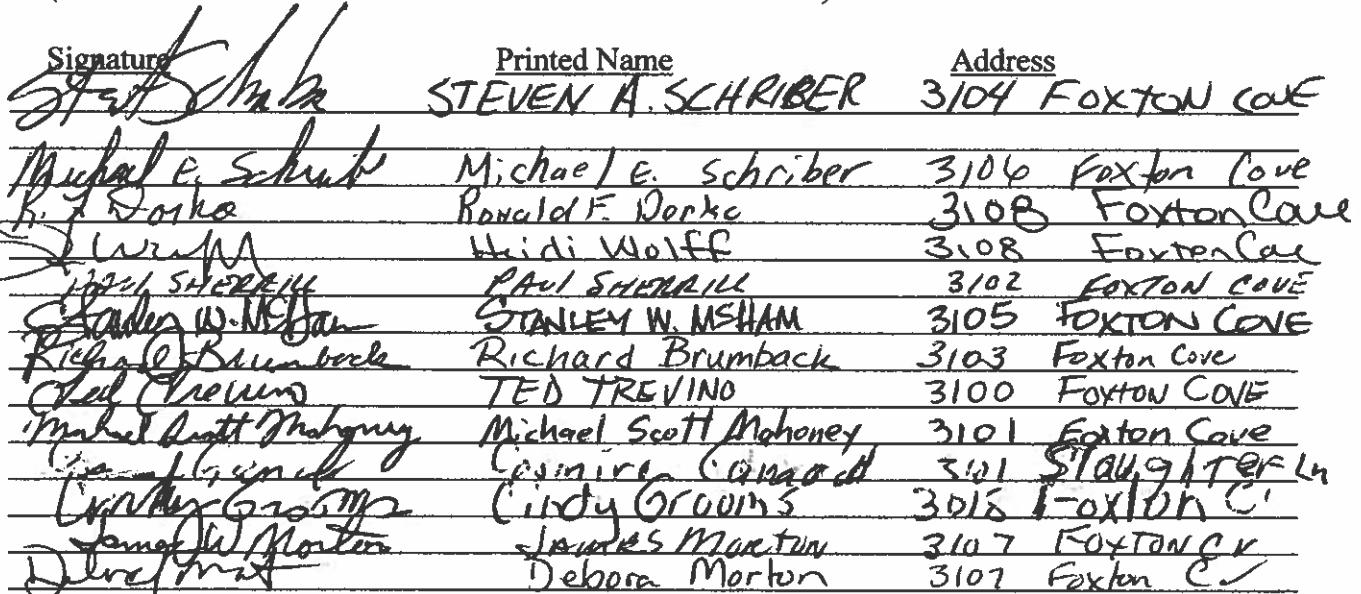 Signature Printed Name Address
STEVEN A. SCHRIBER 3104 FOXTON COVE
Michael E. Schriber Michael E. Schriber 3106 Foxton Cove
R. F. Dorko Ronald F. Dorko 3108 Foxton Cove
Heidi Wolff 3108 Foxton Cove
PAUL SHERRILL PAUL SHERRILL 3102 FOXTON COVE
Stanley W. MSHam STANLEY W. MSHAM 3105 FOXTON COVE
Richard Brumback Richard Brumback 3103 Foxton Cove
Ted Trevino TED TREVINO 3100 FOXTON COVE
Michael Scott Mahoney Michael Scott Mahoney 3101 Foxton Cove
3101 SlaughTER Ln
Cindy Grooms Cindy Grooms Foxton C
James W Morton JAMES MORTON 3107 FOXTON CV
Debora Morton 3107 Foxton Cv